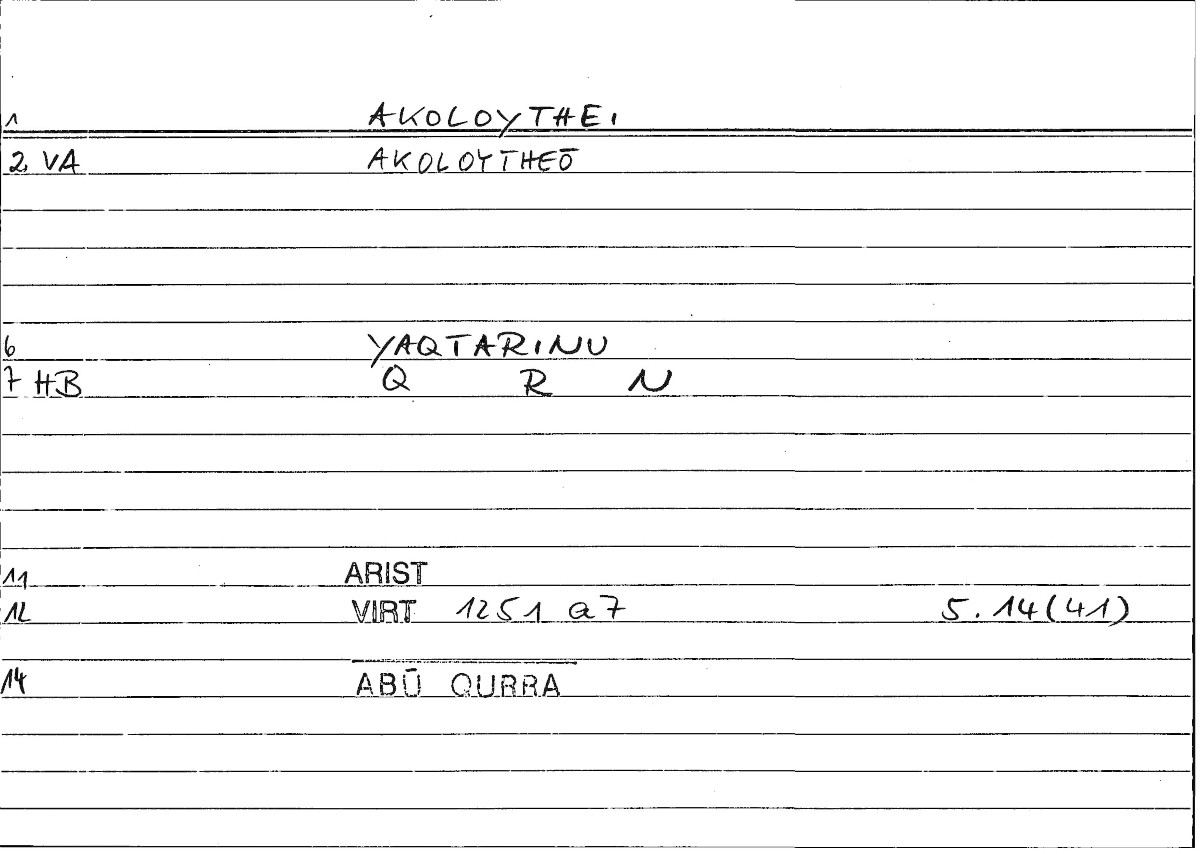 1 AKOLOYTHEI
2 VA AKOLOYTHEŌ
6 YAQTARINU
7 HB Q R N
11 ARIST
12 VIRT 1251 a7 5.14(41)
14 ABŪ QURRA